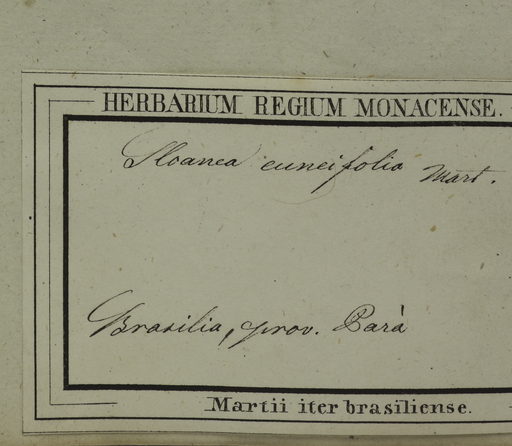 HERBARIUM REGIUM MONACENSE.
Sloanea cuneifolia Mart.
Brasilia, prov. Parà
Martii iter brasiliense.